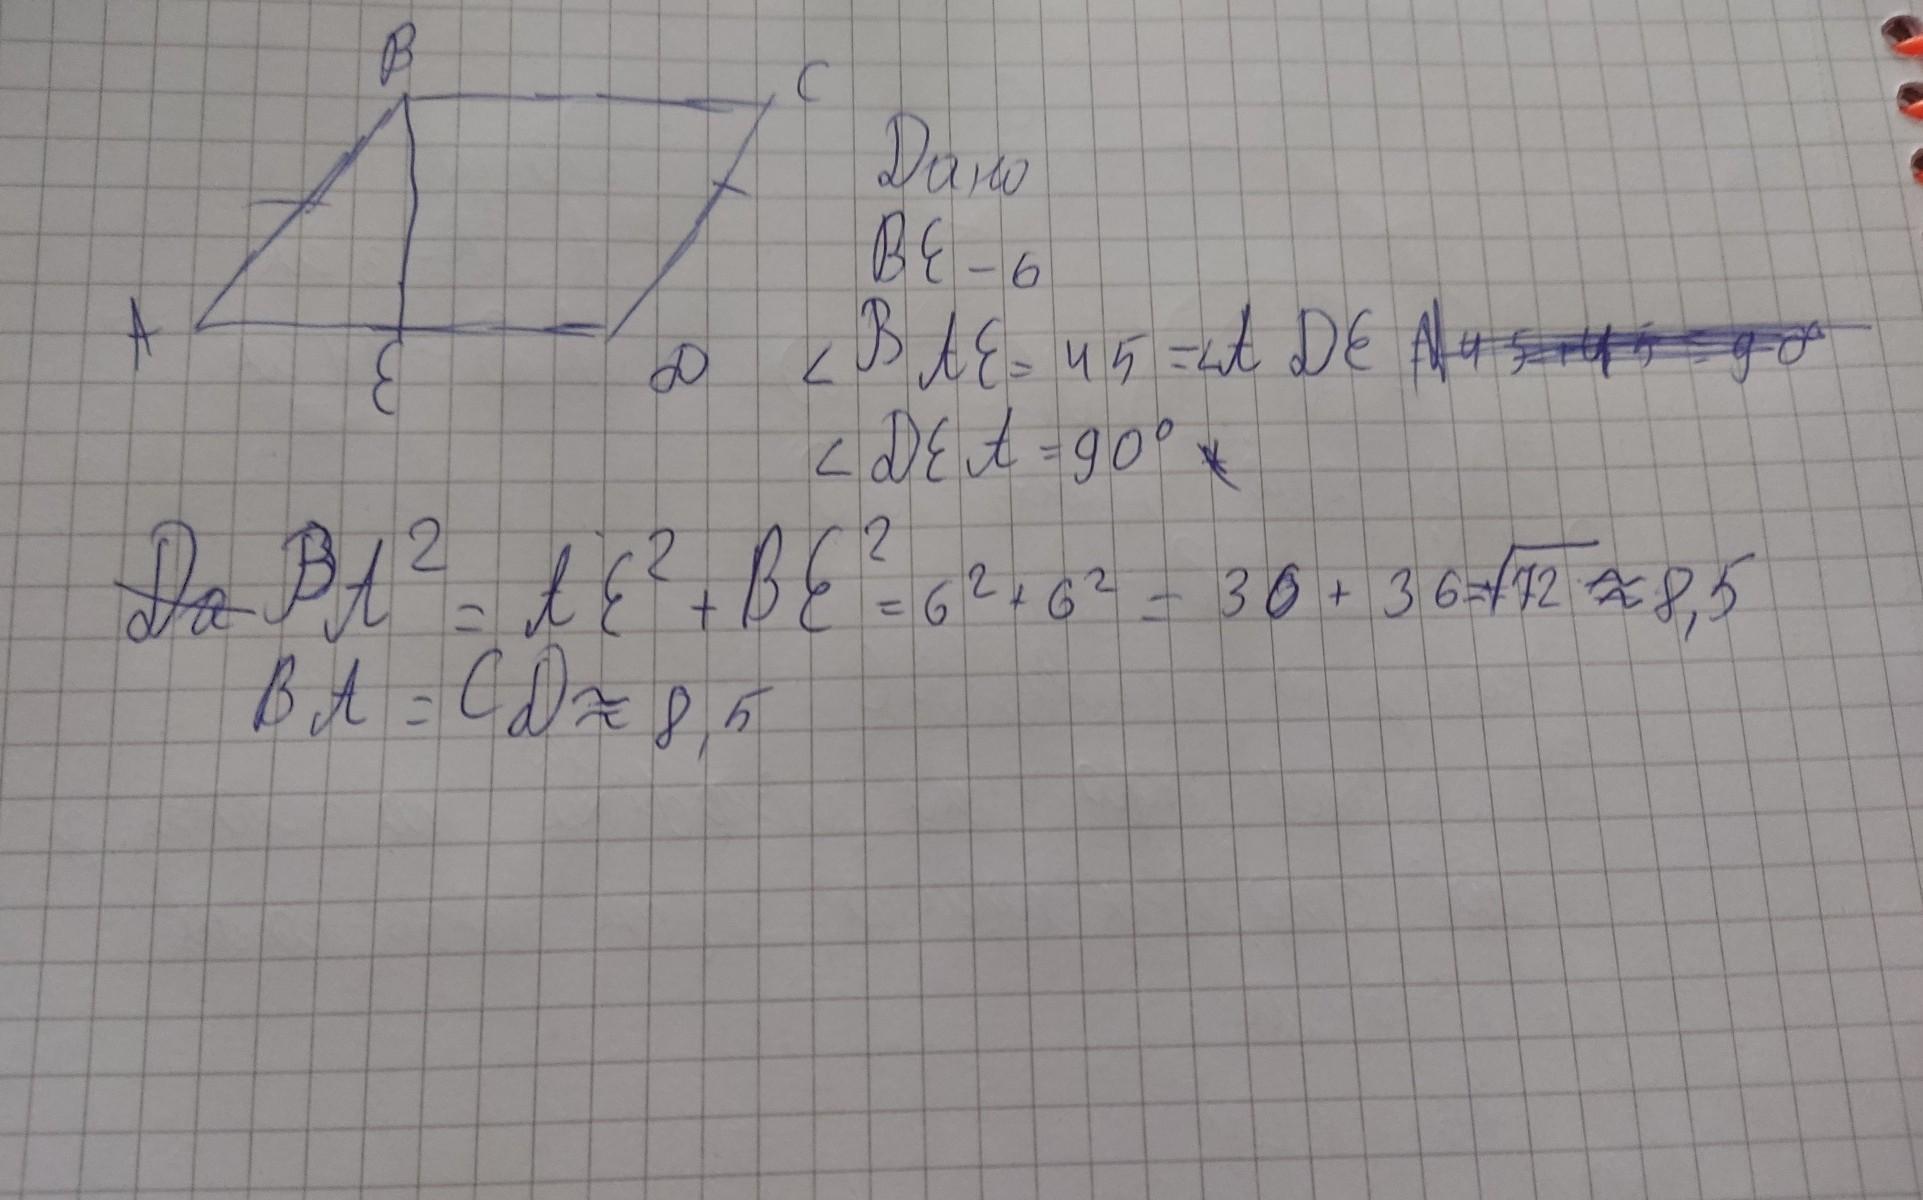 B
C
Дано
BE - 6
A
E
D
< BAE = 45 = < A DE
< DEA = 90°
Да BA² = AE² + BE² = 6² + 6² = 36 + 36 = √72 ≈ 8,5
BA = CD ≈ 8,5